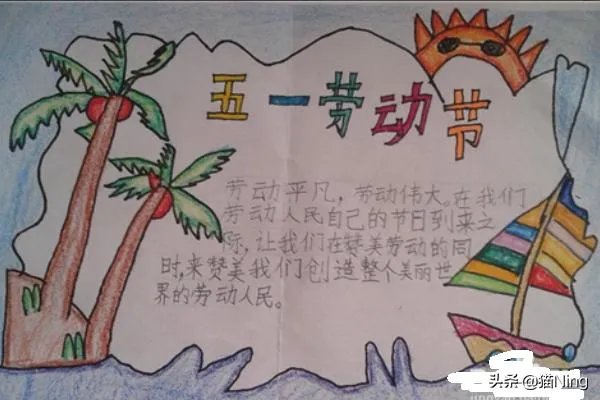 五一劳动节
劳动平凡，劳动伟大。在我们
劳动人民自己的节日到来之
际，让我们在赞美劳动的同
时，来赞美我们创造整个美丽世
界的劳动人民。
头条@猫Ning